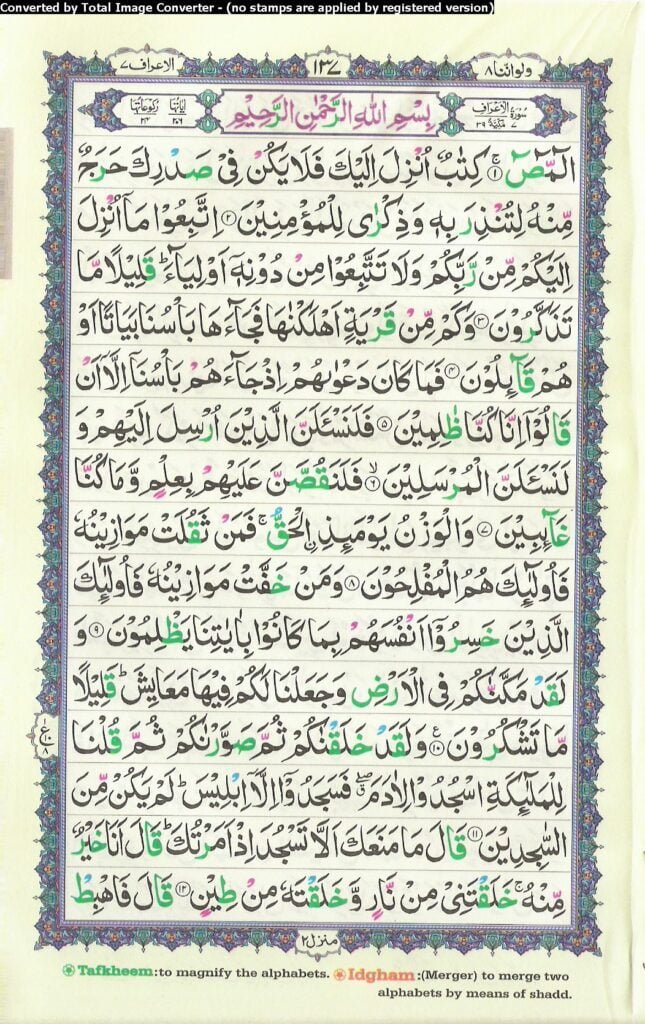 Converted by Total Image Converter - (no stamps are applied by registered version)
ولواننا ٨
١٣٧
الاعراف ٧
سُوْرَةُ ٧ الْاَعْرَافِ مَكِّيَّةٌ ٣٩
بِسْمِ اللّٰهِ الرَّحْمٰنِ الرَّحِيْمِ
اٰيَاتُهَا ٢٠٦
رُكُوْعَاتُهَا ٢٤
الٓمّٓصٓ ۚ۝١ كِتٰبٌ اُنْزِلَ اِلَيْكَ فَلَا يَكُنْ فِيْ صَدْرِكَ حَرَجٌ
مِّنْهُ لِتُنْذِرَ بِهٖ وَ ذِكْرٰى لِلْمُؤْمِنِيْنَ ۝٢ اِتَّبِعُوْا مَاۤ اُنْزِلَ
اِلَيْكُمْ مِّنْ رَّبِّكُمْ وَلَا تَتَّبِعُوْا مِنْ دُوْنِهٖۤ اَوْلِيَآءَ ؕ قَلِيْلًا مَّا
تَذَكَّرُوْنَ ۝٣ وَكَمْ مِّنْ قَرْيَةٍ اَهْلَكْنٰهَا فَجَآءَهَا بَاْسُنَا بَيَاتًا اَوْ
هُمْ قَآئِلُوْنَ ۝٤ فَمَا كَانَ دَعْوٰىهُمْ اِذْ جَآءَهُمْ بَاْسُنَاۤ اِلَّاۤ اَنْ
قَالُوْۤا اِنَّا كُنَّا ظٰلِمِيْنَ ۝٥ فَلَنَسْئَلَنَّ الَّذِيْنَ اُرْسِلَ اِلَيْهِمْ وَ
لَنَسْئَلَنَّ الْمُرْسَلِيْنَ ۙ۝٦ فَلَنَقُصَّنَّ عَلَيْهِمْ بِعِلْمٍ وَّ مَا كُنَّا
غَآئِبِيْنَ ۝٧ وَالْوَزْنُ يَوْمَئِذِ ِۨالْحَقُّ ۚ فَمَنْ ثَقُلَتْ مَوَازِيْنُهٗ
فَاُولٰٓئِكَ هُمُ الْمُفْلِحُوْنَ ۝٨ وَمَنْ خَفَّتْ مَوَازِيْنُهٗ فَاُولٰٓئِكَ
الَّذِيْنَ خَسِرُوْۤا اَنْفُسَهُمْ بِمَا كَانُوْا بِاٰيٰتِنَا يَظْلِمُوْنَ ۝٩ وَ
لَقَدْ مَكَّنّٰكُمْ فِي الْاَرْضِ وَجَعَلْنَا لَكُمْ فِيْهَا مَعَايِشَ ؕ قَلِيْلًا
مَّا تَشْكُرُوْنَ ۝١٠ وَلَقَدْ خَلَقْنٰكُمْ ثُمَّ صَوَّرْنٰكُمْ ثُمَّ قُلْنَا
لِلْمَلٰٓئِكَةِ اسْجُدُوْا لِاٰدَمَ ۖ فَسَجَدُوْۤا اِلَّاۤ اِبْلِيْسَ ؕ لَمْ يَكُنْ مِّنَ
السّٰجِدِيْنَ ۝١١ قَالَ مَا مَنَعَكَ اَلَّا تَسْجُدَ اِذْ اَمَرْتُكَ ؕ قَالَ اَنَا خَيْرٌ
مِّنْهُ ۚ خَلَقْتَنِيْ مِنْ نَّارٍ وَّ خَلَقْتَهٗ مِنْ طِيْنٍ ۝١٢ قَالَ فَاهْبِطْ
منزل ٢
Tafkheem:to magnify the alphabets. Idgham :(Merger) to merge two
alphabets by means of shadd.